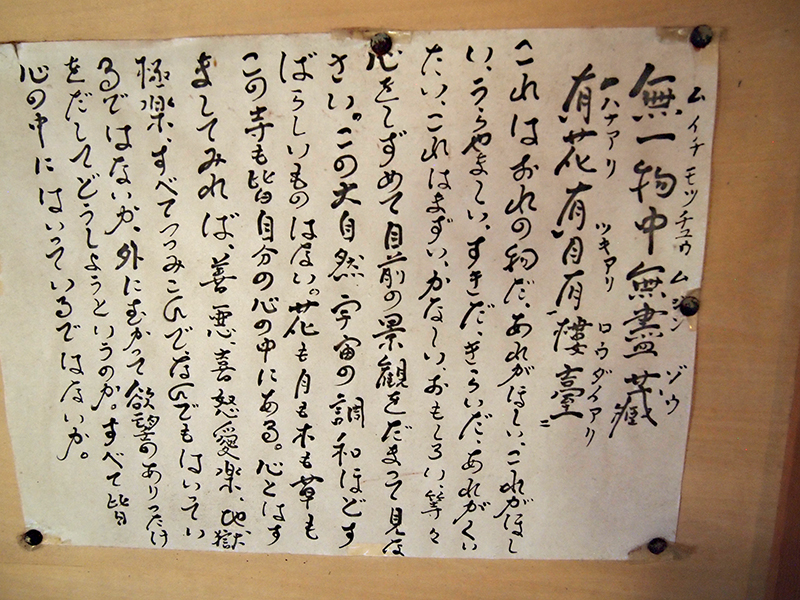 無一物中無盡藏
ムイチモツチュウムジンゾウ
有花有月有樓臺ニ
ハナアリ ツキアリ ロウダイアリ
これはおれの物だ、あれがほしい、これがほし
い、うらやましい、すきだ、きらいだ、あれがくい
たい、これはまずい、かなしい、おもしろい等々
心をしずめて目前の景観をだまって見な
さい。この大自然、宇宙の調和ほどす
ばらしいものはない。花も月も木も草も
この寺も皆自分の心の中にある。心とはす
ましてみれば、善悪、喜怒愛楽、地獄
極楽、すべてつつみこんでなんでもはいってい
るではないか、外にむかって欲望のありったけ
をだしてどうしようというのか。すべて皆
心の中にはいっているではないか。